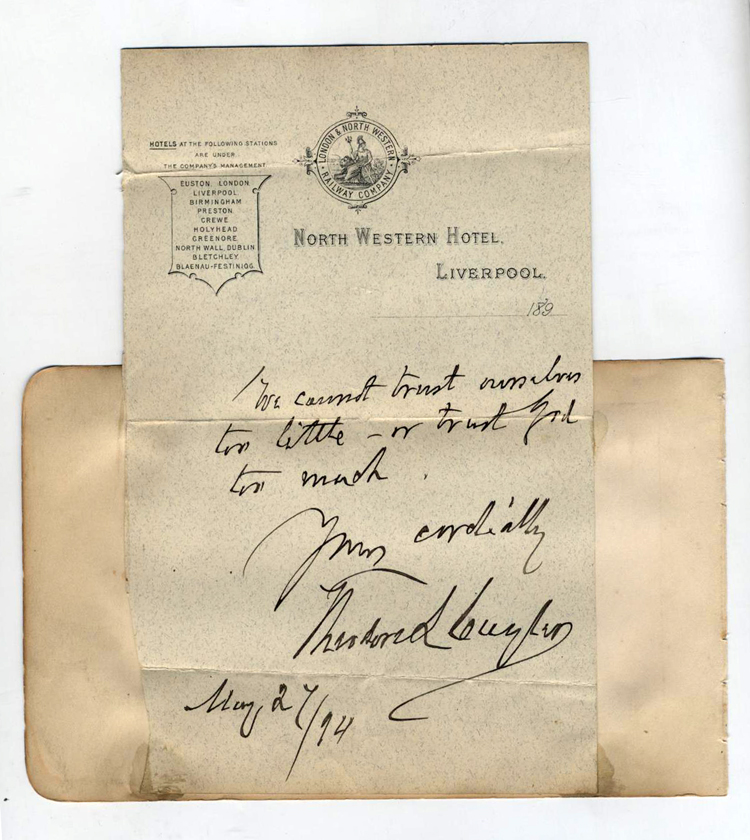 HOTELS AT THE FOLLOWING STATIONS
ARE UNDER
THE COMPANY'S MANAGEMENT
EUSTON, LONDON
LIVERPOOL
BIRMINGHAM
PRESTON
CREWE
HOLYHEAD
GREENORE
NORTH WALL, DUBLIN
BLETCHLEY
BLAENAU-FESTINIOG
LONDON & NORTH WESTERN
RAILWAY COMPANY
NORTH WESTERN HOTEL,
LIVERPOOL.
189
We cannot trust ourselves
too little – or trust God
too much.
Yours cordially
Theodore L Cuyler
May 27/94